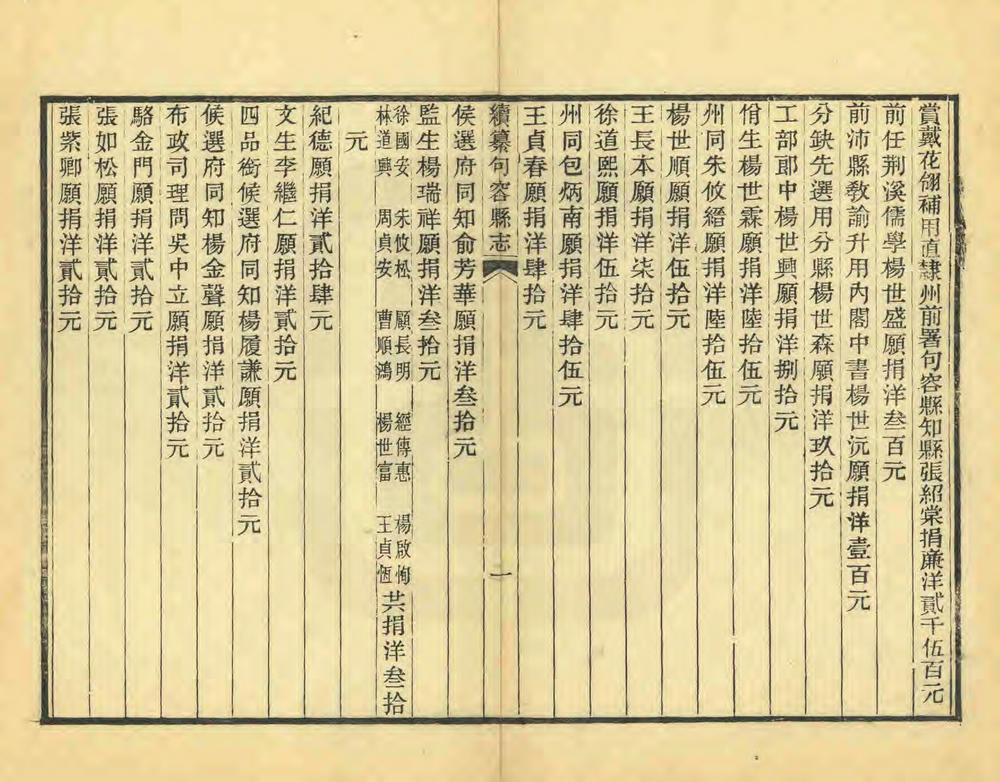 賞戴花翎補用直隸州前署句容縣知縣張紹棠捐廉洋貳千伍百元
前任荆溪儒學楊世盛願捐洋叁百元
前沛縣敎諭升用內閣中書楊世沅願捐洋壹百元
分缺先選用分縣楊世森願捐洋玖拾元
工部郎中楊世興願捐洋捌拾元
佾生楊世霖願捐洋陸拾伍元
州同朱攸縉願捐洋陸拾伍元
楊世順願捐洋伍拾元
王長本願捐洋柒拾元
徐道熙願捐洋伍拾元
州同包炳南願捐洋肆拾伍元
王貞春願捐洋肆拾元
續纂句容縣志 一
侯選府同知俞芳華願捐洋叁拾元
監生楊瑞祥願捐洋叁拾元
徐國安 朱攸松 顧長明 經傳惠 楊啟恂
林道興 周貞安 曹順鴻 楊世富 王貞恆 共捐洋叁拾
元
紀德願捐洋貳拾肆元
文生李繼仁願捐洋貳拾元
四品銜候選府同知楊履謙願捐洋貳拾元
候選府同知楊金聲願捐洋貳拾元
布政司理問吳中立願捐洋貳拾元
駱金門願捐洋貳拾元
張如松願捐洋貳拾元
張紫卿願捐洋貳拾元